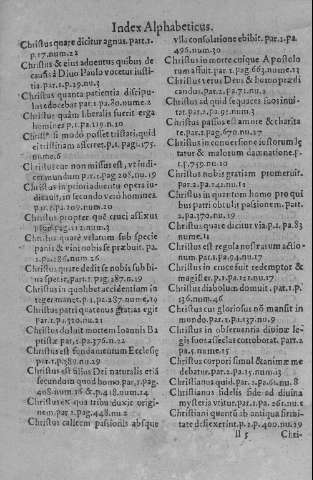 Index Alphabeticus.
Christus quare dicitur agnus. part. 1.
p. 17. num. 22
Christus & eius aduentus quibus de
causis à Diuo Paulo vocetur iusti-
tia. par. 1. p. 29. nu. 3
Christus quanta patientia discipu-
los edocebat par. 1. pa. 80. nume. 2
Christus quàm liberalis fuerit erga
homines p. 1. pa. 119. n. 10
si modò posset tristari, quid
ei tristitiam afferret. p. 1. pag. 175.
nume. 6
Christus cur non missus est, vt iudi-
cet mundum par. 1. pag. 208. nu. 19
Christus in priori aduentu opera iu-
dicauit, in secundo verò homines.
par. 1. pa. 209. num. 20
Christus propter quē cruci affixus
num. 3
Christus quare velatum sub specie
panis & vini nobis se præbuit. pa.
1. pa. 186. num. 26
Christus quare dedit se nobis sub bi-
na specie, part. 1. pag. 187. nu. 29
Christus in quolibet accidentium in
teger manet. p. 1. pa. 287. nume. 29
Christus patri quatenus gratias egit
par. 1. pa. 320. nu. 22
Christus doluit mortem Ioannis Ba
ptistæ par. 2. pa. 376. n. 22
Christus est fundamentum Ecclesię
par. 1. pa. 380. nu. 29
Christus est filius Dei naturalis etiā
secundum quod homo par. 1. pag.
408. num. 26 & p. 418. num. 14
Christus ex qua tribu duxit origi-
nem. par. 1. pag. 448. nu. 2
Christus calicem passionis absque
vlla consolatione ebibit. par. 1. pa.
496. num. 30
Christus in morte cuique Apostolo
rum astuit. par. 1. pag. 663. nume. 13
Christus verus Deus & homo prædi
candus. par. 2. pa. 71. nu. 2
Christus ad quid sequaces suos inui-
tet. par. 2. pa. 91. num. 3
Christus passus est amore & charita
te. par. 2. pag. 670. nu. 27
Christus in conuersione iustorum lę
tatur & malorum damnatione. p.
1. p. 759. nu. 10
Christus nobis gratiam promeruit.
par. 2. pa. 141. nu. 11
Christus in quantum homo pro qui
bus patri obtulit passionem. part.
2. pa. 370. nu. 19
Christus quare dicitur via p. 1. pa. 83
nume. 11
Christus est regula nostrarum actio-
num par. 1. pa. 94. nu. 17
Christus in cruce fuit redemptor &
magister. p. 1. pa. 121. nu. 17
Christus diabolum domuit. par. 1. p.
136. num. 46
Christus cur gloriosus nō mansit in
mundo. par. 1. p. 137. nu. 9
Christus in obseruentia diuinæ le-
gis suos asseclas corroborat. part. 2
pa. 5. nume. 15
Christus corpori simul & animæ me
debatur. par. 2. pa. 15. num. 13
Christianus quid. par. 1. pa. 61. nu. 8
Christianus fidelis fide ad diuina
mysteria vtitur. par. 1. pa. 261. nu. 1
Christiani quentū ab antiqua firmi-
tate desciuerint. p. 1. p. 400. nu. 39
ll 5
Chri-